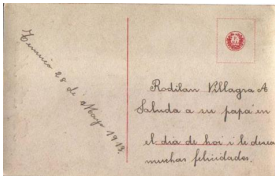 Temuco 20 de Mayo 1913
Rodilan Villagra A
Saluda a su papá en
el dia de hoi i le desea
muchas felicidades.